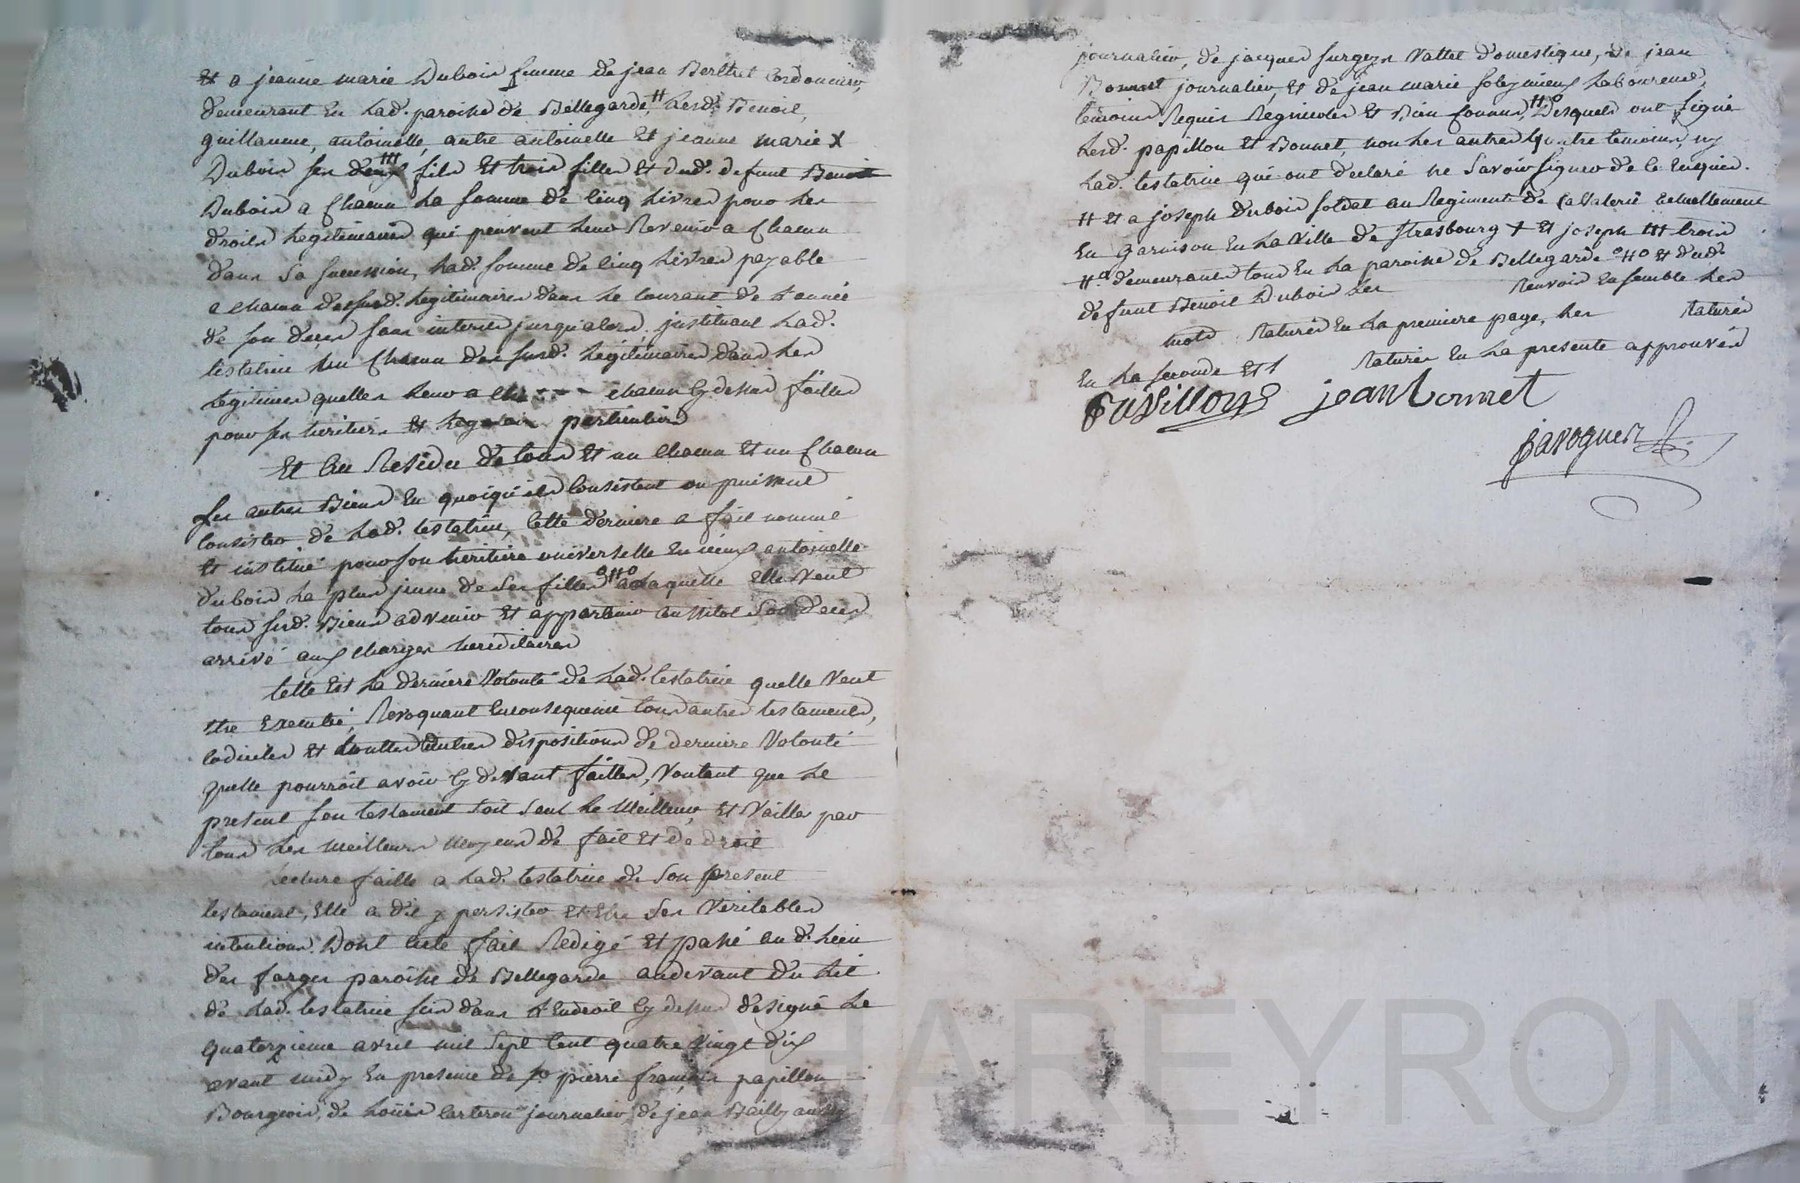 et a jeanne marie Dubois femme de jean Berthet Cordonnier,
demeurant en lad. paroisse de Bellegarde, # lesd. Benoit,
guillaume, antoinette, autre antoinette et jeanne marie X
Dubois ses deux ### fils et trois filles et dud. defunt Benoit
Dubois a chacun la somme de cinq livres pour les
droits legitimaires qui peuvent leur Revenir a chacun
dans sa succession, lad. somme de cinq livres payable
a chacun desusd. legitimaires dans le courant de l'année
de son deces sans interets jusqu'alors, instituant lad.
testatrice un chacun des susd. legitimaires dans les
legitimes quelles leur a chacun cy dessus faittes
pour ses heritiers et legataires particuliers
Et au Residu de tous et un chacun et un chacun
ses autres Biens en quoiqu'ils Consistent ou puissent
Consister de lad. testatrice, Cette derniere a fait nommé
et institué pour son heritiere universelle en iceux antoinette
dubois la plus jeune de ses filles o#o a laquelle elle veut
tous sesd. Biens advenir et appartenir aussitot son deces
arrivé aux charges hereditaires
Cette est la derniere Volonté de lad. testatrice quelle veut
etre Executée, Revoquant enconsequence tous autres testaments,
Codiciles et touttes autres dispositions de derniere Volonté
quelle pourroit avoir cy devant faittes, Voulant que le
present son testament soit seul le meilleur, et Vaille par
tous les meilleurs moyens de fait et de droit
Lecture faitte a lad. testatrice de son present
testament, Elle a dit y persister et Etre ses Veritables
intentions Dont acte fait Redigé et passé aud. lieu
des farges paroisse de Bellegarde audevant du lit
de lad. testatrice sis dans l'Endroit cy dessus designé le
quatorzieme avril mil sept Cent quatre vingt dix
avant midy En presence de sr. pierre françois papillon
Bourgeois, de Louis Carteron journalier, de jean Bailly aussy
journalier, de jacques surgey Vallet Domestique, de jean
Bonnet journalier, et de jean marie solezmieux laboureur,
temoins Requis Regnicoles et Bien connus, ## Lesquels ont signé
lesd. papillon et Bonnet, non les autres quatre temoins, ny
lad. testatrice qui ont declaré ne savoir signer de ce Enquis.
# et a joseph Dubois soldat au Regiment de Cavalerie actuellement
En garnison En la Ville de strasbourg + et joseph ### trois
## demeurants tous En la paroisse de Bellegarde o#o et dud.
defunt Benoit Dubois les Renvois Ensemble les
mots Raturés En la premiere page, les Raturés
En la seconde et 1 Raturés En la presente approuvés
Papillon jean bonnet
javogues
CHAREYRON